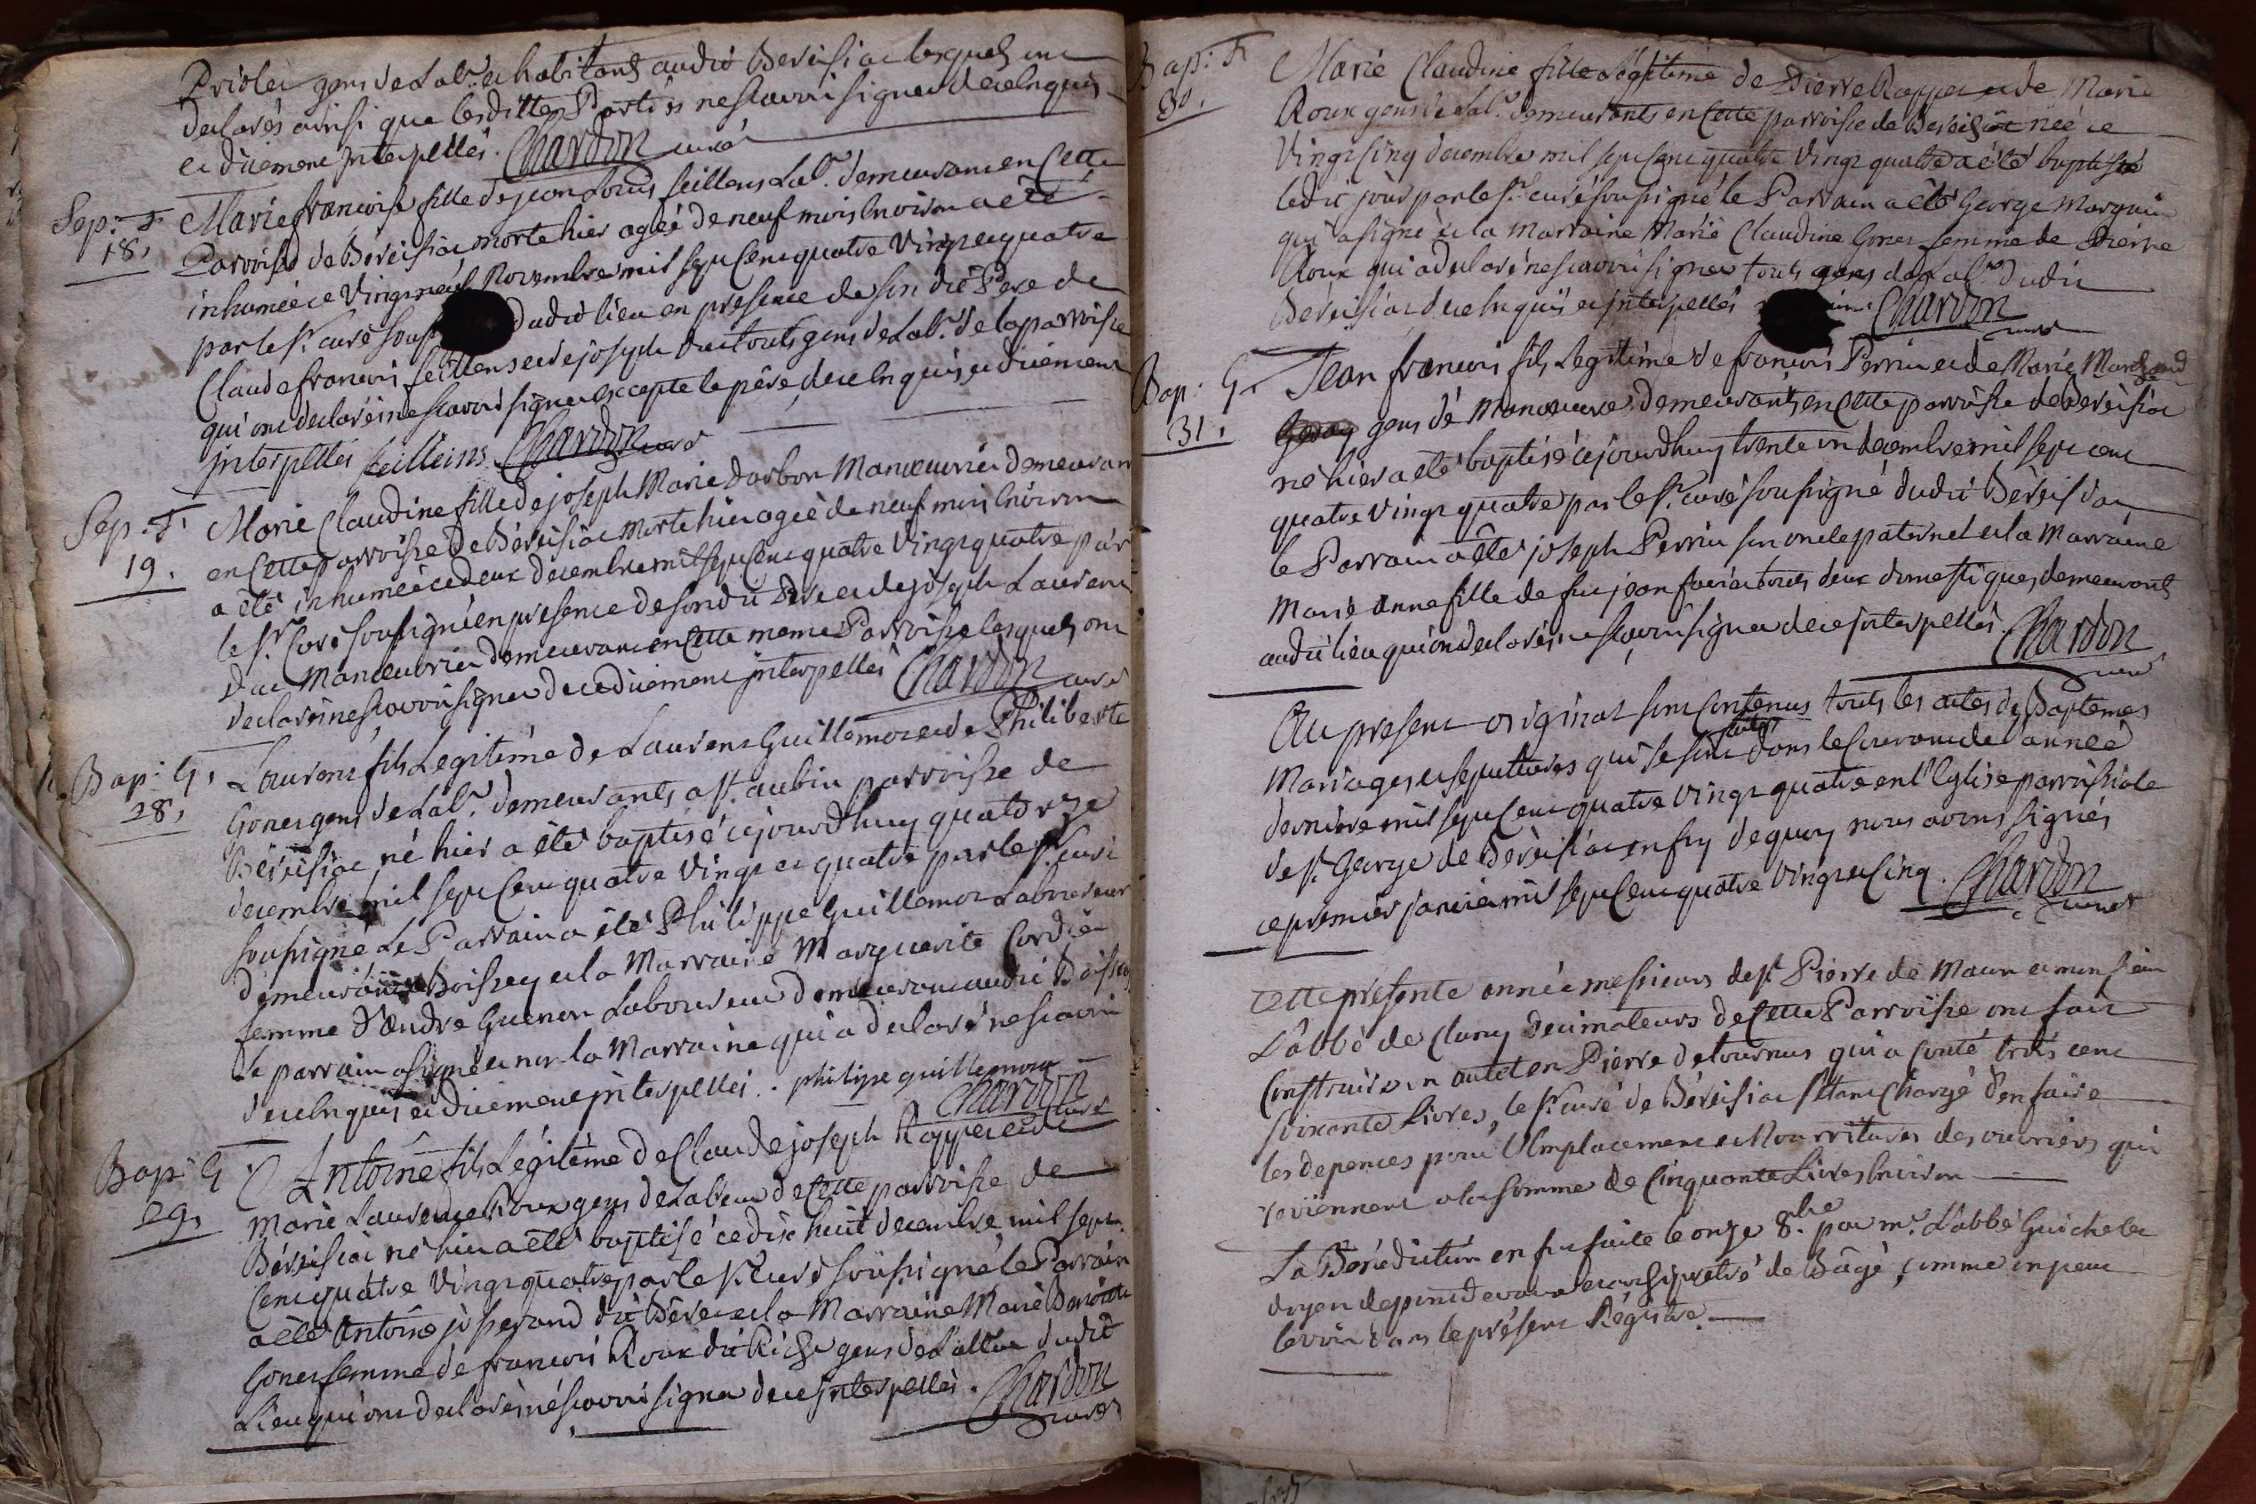 Priolet gens de Lab.r et habitants audit Bereisiac lesquels ont
declarés ainsi que lesdittes Parties ne scavoir signer de ce Enquis
et dûement interpellés. Chardon curé
Sep: F.
18.
Marie francoise fille de jean Louis feillens Lab.r demeurant en Cette
Parroisse de Béreisiac morte hier agéé de neuf mois Environ a été
inhumée ce Vingt neuf Novembre mil sept Cent quatre Vingt et quatre
par le Sr. curé Dudit lieu en presence de son dit Pere de
Claude francois feillens et de joseph touts gens de Lab.r de la parroisse
qui ont declarés ne scavoir signer excepté le père, de ce Enquis et dûement
interpellés feilleins Chardon curé
Sep: F.
19.
Marie Claudine fille de joseph Marie Darbon Manœuvrier demeurant
en Cette Parroisse de Béreisiac morte hier agéé de neuf mois Environ
a été inhumée ce deux decembre mil sept Cent quatre Vingt quatre par
le Sr. Curé soussigné en presence de son dit Pere et de joseph Laurent
Manœuvrier demeurant en Cette meme Parroisse lesquels ont
declarés ne scavoir signer de ce dûement interpellés Chardon curé
Bap: G.
28.
Laurent fils Legitime de Laurent Guillemot et de Philiberte
Gonet gens de Lab.r demeurants a St. aubin parroisse de
Béreisiac né hier a été baptisé cejourdhuy quatorze
decembre mil sept Cent quatre Vingt et quatre par le Sr. Curé
soussigné Le Parrain a été Philippe Guillemot Laboureur
demeurant Boissey et la Marraine Marguerite Cordier
femme D'andre Guenon Laboureur demeurant audit Boissey
Le parrain a signé et non la Marraine qui a declaré ne scavoir
de ce Enquis et dûement interpellés. philippe guillemot
Chardon curé
Bap: G
29.
Antoine fils Légitime de Claude joseph Rappet et de
Marie Laurence Roux gens de Labeur de Cette parroisse de
Béreisiac né hier a été baptisé ce dix huit decembre mil sept
Cent quatre Vingt quatre par le Sr. Curé soussigné le Parrain
a été Antoine josserand dit Bére et la Marraine Marie Benoite
Gonet femme de francois Roux dit Riche gens de Labeur dudit
Lieu qui ont declarés ne scavoir signer de ce interpellés. Chardon
curé
Bap: F
30.
Marie Claudine fille Légitime de Pierre Rappet et de Marie
Roux gens de Lab.r demeurants en Cette parroisse de Bereisiac néé ce
Vingt Cinq decembre mil sept Cent quatre Vingt quatre a été baptisée
ledit jour par le Sr. curé soussigné le Parrain a été George Marguin
qui a signé et la Marraine Marie Claudine Gonet femme de Pierre
Roux qui a declaré ne scavoir signer touts gens de Lab.r dudit
Béreisiac de ce Enquis et interpellés Chardon
curé
Bap: G.
31.
Jean francois fils Legitime de francois Perrin et de Marie Marchand
gens de Manœuvre demeurants en Cette parroisse de Bereisiac
né hier a été baptisé cejourdhuy trente un decembre mil sept cent
quatre Vingt quatre par le Sr. curé soussigné dudit Béreisiac
le Parrain a été joseph Perrin son oncle paternel et la Marraine
Marie Anne fille de feu jean touts deux domestiques demeurants
audit lieu qui ont declarés ne scavoir signer de ce interpellés. Chardon
curé
Au present original sont Contenus touts les actes de Baptemes
Mariages et sepultures qui se sont faits dans le Courant de l'année
derniere mil sept Cent quatre Vingt quatre en l'Eglise parroissiale
de St. George de Béreisiac en foy dequoy nous avons signés
ce premier janvier mil sept Cent quatre Vingt et Cinq. Chardon
curé
Cette présente année messieurs de St. Pierre de Macon et monsieur
L'abbé de Cluny Decimateurs de Cette Parroisse ont fait
Construire un autel en Pierre de tournus qui a Couté trois cent
soixante Livres, le Sr. curé de Béreisiac s'étant Chargé d'en faire
les depences pour l'Emplacement et Nourritures des ouvriers qui
reviennent a la somme de Cinquante Livres Environ
La Bénédiction en fut faite le onze 8.bre par mr. L'abbé Guichelet
doyen de pont devaux et archiprêtré de Bâgé, comme on peut
le voir dans le présent Régistre.